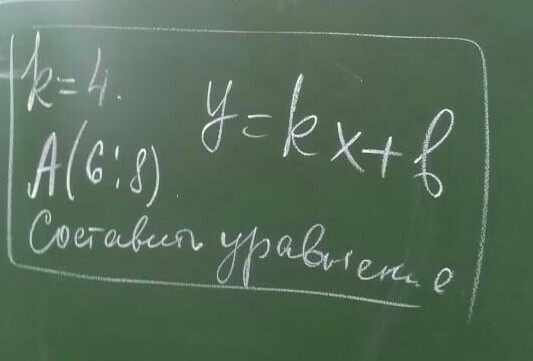 k=4.
y=kx+b
A(6;8)
Составить уравнение